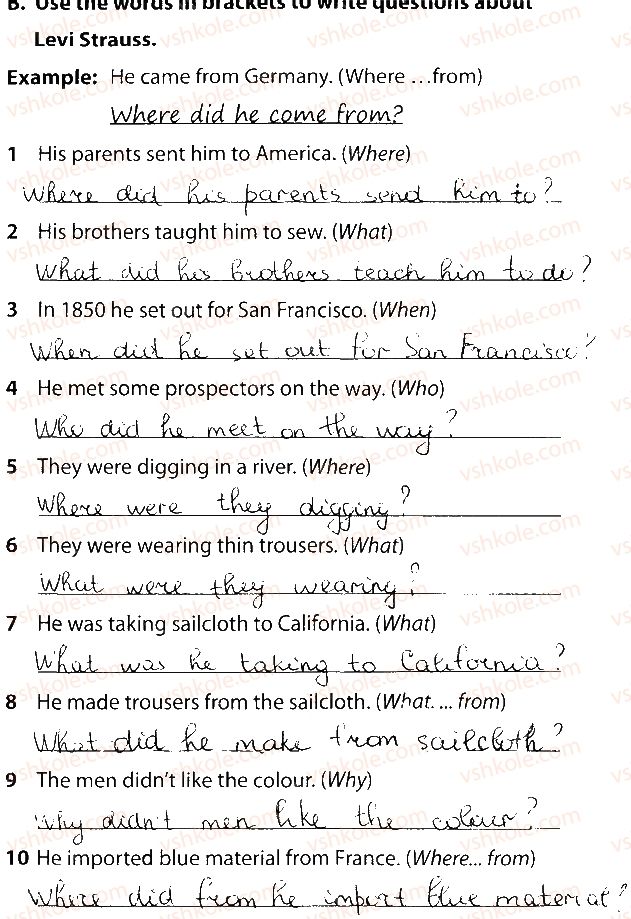 B. Use the words in brackets to write questions about
Levi Strauss.
Example: He came from Germany. (Where ...from)
Where did he come from?
1 His parents sent him to America. (Where)
Where did his parents send him to?
2 His brothers taught him to sew. (What)
What did his brothers teach him to do?
3 In 1850 he set out for San Francisco. (When)
When did he set out for San Francisco?
4 He met some prospectors on the way. (Who)
Who did he meet on the way?
5 They were digging in a river. (Where)
Where were they digging?
6 They were wearing thin trousers. (What)
What were they wearing?
7 He was taking sailcloth to California. (What)
What was he taking to California?
8 He made trousers from the sailcloth. (What. ... from)
What did he make from sailcloth?
9 The men didn't like the colour. (Why)
Why didn't men like the colour?
10 He imported blue material from France. (Where... from)
Where did from he import blue material?
vshkole.com